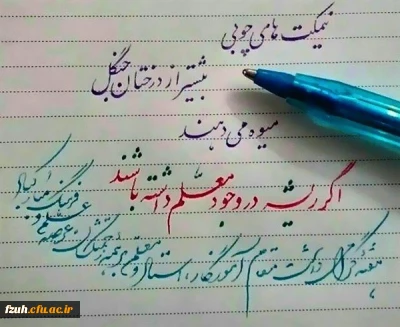 نیمکت های چوبی
بیشتر از درختان جنگل
میوه می دهند
اگر ریشه در وجود معلم داشته باشند
هفته گرامی داشت مقام آموزگار، استاد و معلم بر
عرصه
علم و
فرهنگ مبارکباد
fzuh.cfu.ac.ir